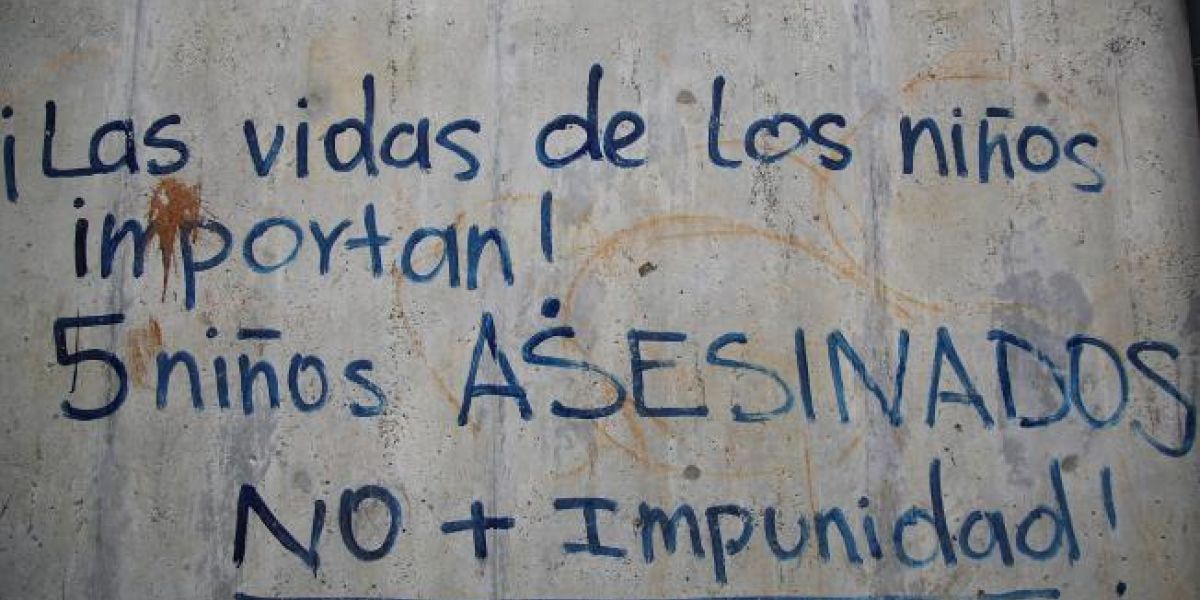 ¡Las vidas de los niños
importan!
5 niños ASESINADOS
NO + Impunidad!